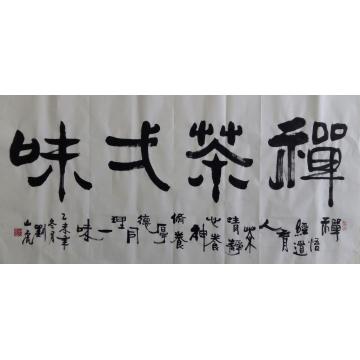 禪茶弌味
禪悟經道育人茶清靜心養神脩養厚德同理一味
乙未年
冬月
劉